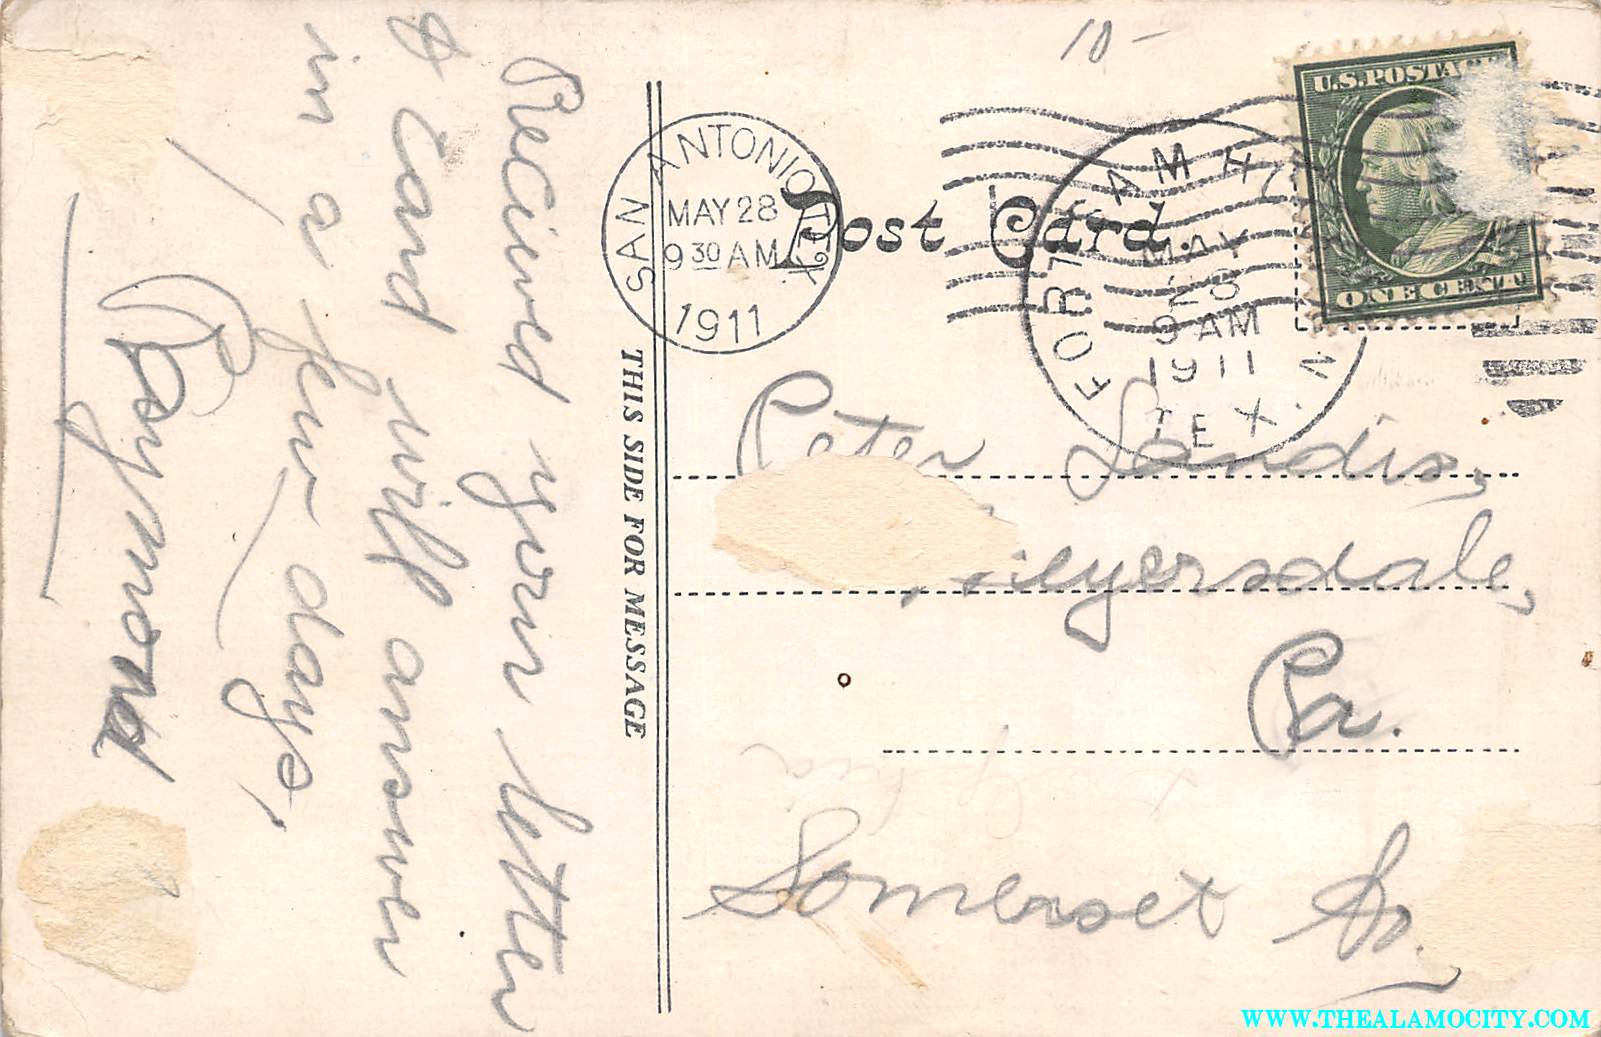 10 -
U.S. POSTAGE
ONE CENT
SAN ANTONIO, TEX.
MAY 28
9 30 AM
1911
Post Card.
FORT SAM HOUSTON
MAY
28
9 AM
1911
TEX.
THIS SIDE FOR MESSAGE
Recieved your letter
& card will answer
in a few days,
Raymond
Peter Landis,
Meyersdale,
Pa.
Somerset Co.
WWW.THEALAMOCITY.COM